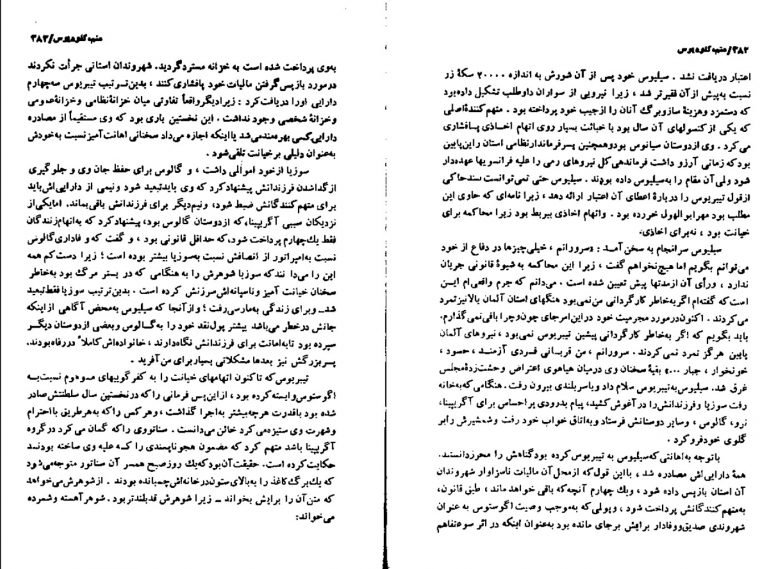 ۳۸۲/منم کلودیوس
اعتبار دریافت نشد . سیلیوس خود پس از آن شورش به اندازه ۳۰۰۰۰ سکهٔ زر
نسبت به‌پیش از آن فقیرتر شد ، زیرا نیرویی از سواران داوطلب تشکیل داده‌بود
که دستمزد وهزینهٔ سازوبرگ آنان را ازجیب خود پرداخته بود . متهم کنندهٔ‌اصلی
که یکی از کنسولهای آن سال بود با خباثت بسیار روی اتهام اخاذی پـافشاری
می‌کرد . وی ازدوستان سیانوس بودوهمچنین پسرفرماندارنظامی استان راین‌پایین
بودکه زمانی آرزو داشت فرماندهی کل نیروهای رمی را علیه فرانسویها عهده‌دار
شود ولی آن مقام را به‌سیلیوس داده بودند . سیلیوس حتی نمی‌توانست سندحاکی
ازقول تیبریوس را دربارهٔ اعطای آن اعتبار ارائه دهد ، زیرا نامه‌ای که حاوی این
مطلب بود مهرابوالهول خورده بود . واتهام اخاذی بیربط بود زیرا محاکمه برای
خیانت بود ، نه‌برای اخاذی.
سیلیوس سرانجام به سخن آمد : «سرورانم ، خیلی‌چیزها در دفاع از خود
می‌توانم بگویم اما هیچ‌نخواهم گفت ، زیرا این محاکمه به شیوهٔ قانونی جریان
ندارد ، ورأی آن ازمدتها پیش تعیین شده است . می‌دانم که جرم واقعی‌ام این
است که گفته‌ام اگر به‌خاطر کارگردانی من نمی‌بود هنگهای استان آلمان بالانیز تمرد
می‌کردند . اکنون‌درمورد مجرمیت خود دراین‌امرجای چون‌وچرا باقی نمی‌گذارم.
باید بگویم که اگر به‌خاطر کارگردانی پیشین تیبریوس نمی‌بود ، نیروهای آلمان
پایین هرگز تمرد نمی‌کردند . سرورانم ، من قربانی فردی آزمند ، حسود ،
خونخوار ، جبار ...» بقیهٔ سخنان وی درمیان هیاهوی اعتراض وحشت‌زدهٔ مجلس
غرق شد. سیلیوس به‌تیبریوس سلام داد وباسربلندی بیرون رفت. هنگامی که به‌خانه
رفت سوزیا وفرزندانش را درآغوش کشید، پیام بدرودی پراحساس برای آگریپینا،
نرو، گالوس ، وسایر دوستانش فرستاد و به‌اتاق خواب خود رفت وشمشیرش رابر
گلوی خودفروکرد .
باتوجه به‌اهانتی که‌سیلیوس به تیبریوس کرده بودگناهش را محرزدانستند.
همهٔ دارایی‌اش مصادره شد ، بااین قول‌که ازمحل‌آن مالیات ناسزاوار شهروندان
آن استان بازپس داده شود ، ویک چهارم آنچه‌که باقی خواهدماند ، طبق قانون،
به‌متهم‌کنندگانش پرداخت شود ، وپولی که‌به‌موجب وصیت اگوستوس به عنوان
شهروندی صدیق‌ووفادار برایش برجای مانده بود به‌عنوان اینکه در اثر سوءتفاهم
منم کلودیوس/۳۸۳
به‌وی پرداخت شده است به خزانه مسترد گردید. شهروندان استانی جرأت نکردند
درمورد بازپس‌گرفتن مالیات خود پافشاری‌کنند ، بدین‌ترتیب تیبریوس سه‌چهارم
دارایی اورا دریافت کرد : زیرادیگرواقعاً تفاوتی میان خزانهٔ‌نظامی وخزانهٔ‌عمومی
وخزانهٔ شخصی وجود نداشت . این نخستین باری بود که وی مستقیماً از مصادره
دارایی‌کسی بهره‌مندمی‌شد یا‌اینکه اجازه می‌داد سخنانی اهانت‌آمیز نسبت به‌خودش
به‌عنوان دلیلی برخیانت تلقی‌شود .
سوزیا ازخود اموالی داشت ، و گالوس برای حفظ جان وی و جلوگیری
ازگداشدن فرزندانش پیشنهاد‌کرد که وی بایدتبعید شود ونیمی از دارایی‌اش‌باید
برای متهم‌کنندگانش ضبط شود، ونیم‌دیگر برای فرزندانش باقی‌بماند. اما‌یکی از
نزدیکان سببی آگریپینا، که‌ازدوستان گالوس بود، پیشنهادکرد که به‌اتهام‌زنندگان
فقط یک‌چهارم پرداخت شود، که‌حداقل قانونی بود ، و گفت که و فاداری گالوس
نسبت به‌امپراتور از انصافش نسبت به‌سوزیا بیشتر بوده است ؛ زیرا دست‌کم همه
این را می‌دانند که سوزیا شوهرش را به هنگامی که در بستر مرگ بود به‌خاطر
سخنان خیانت آمیز وناسپاسانه‌اش‌سرزنش کرده است . بدین‌ترتیب سوزیا فقط تبعید
شدـ وبرای زندگی به‌مارسی‌رفت ؛ وازآنجا که سیلیوس به‌محض آگاهی ازاینکه
جانش درخطر می‌باشد بیشتر پول‌نقد خود را به‌گـالوس وبعضی ازدوستان دیگـر
سپرده بود تابه‌امانت برای فرزندانش نگاه‌دارند ، خانواده‌اش کاملاً در رفاه‌بودند.
پسربزرگش نیز بعدها مشکلاتی بسیار برای من آفرید .
تیبریوس‌که تاکنون اتهامهای خیانت را به کفرگوییهای مـوهوم نسبت‌بـه
اگوستوس وابسته‌کرده بود ، ازاین‌پس فرمانی را که‌درنخستین سال سلطنتش‌صادر
شده بود باقدرت هرچه‌بیشتر به‌اجرا گذاشت ، وهرکس را که به‌هرطریق بااحترام
وشهرت وی ستیزه می‌کرد خائن می‌دانست . سناتوری را که گمان می‌کرد درگروه
آگریپینا باشد متهم کرد که مضمون هجوناپسندی را که‌علیه وی ساخته بودنـد
حکایت‌کرده است. حقیقت آن بودکه‌یک روزصبح همسر آن سناتور متوجه‌می‌شود
که یک‌برگ‌کاغذ را به‌بالای‌ستون درخانه‌اش‌چسبانده بودند . ازشوهرش‌می‌خواهد
که متن‌آن را برایش بخواند ـ زیرا شوهرش قدبلندتربود . شوهر آهسته وشمرده
می‌خواند: